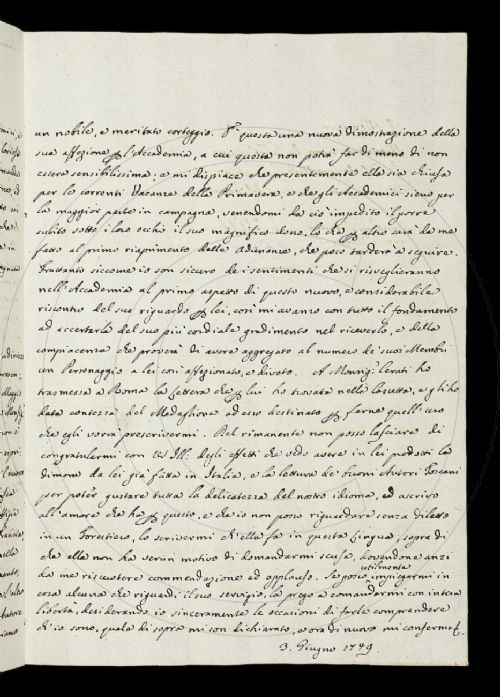 un nobile, e meritato corteggio. È questa una nuova dimostrazione della
sua affezione per l'Accademia, a cui questa non potrà far di meno di non
essere sensibilissima, e mi dispiace che presentemente ella sia chiusa
per le correnti Vacanze della Primavera, e che gli Accademici sieno per
la maggior parte in campagna, venendomi da ciò impedito il porre
subito sotto i loro occhi il suo magnifico dono, lo che per altro sarà da me
fatto al primo riaprimento delle Adunanze, che poco tarderà a seguire.
Frattanto siccome io son sicuro de i sentimenti che si risveglieranno
nell'Accademia al primo aspetto di questo nuovo, e considerabile
riscontro del suo riguardo per lei, così mi avanzo con tutto il fondamento
ad accertarla del suo più cordiale gradimento nel riceverlo, e della
compiacenza che proverà di avere aggregato al numero de' suoi Membri
un Personaggio a lei così affezionato, e divoto. A Monsig.r Cerati ho
trasmessa a Roma la lettera che per lui ho trovata nella casetta, e gli ho
data contezza del Medaglione ad esso destinato per farne quell'uso
che egli vorrà prescrivermi. Nel rimanente non posso lasciare di
congratularmi con VS Ill. degli effetti che vedo avere in lei prodotti la
dimora da lei già fatta in Italia, e la lettura de' buoni Autori Toscani
per poter gustare tutta la delicatezza del nostro idioma, ed ascrivo
all'amore che ha per questo, e che io non posso riguardare senza diletto
in un Forestiero, lo scrivermi ch'ella fa in questa Lingua, sopra di
che ella non ha verun motivo di domandarmi scusa, dovendone anzi
da me riscuotere commendazione ed applauso. Se posso utilmente impiegarmi in
cosa alcuna che riguardi il suo servigio, la prego a comandarmi con intera
libertà, desiderando io sinceramente le occasioni di farle comprendere
ch'io sono, quale di sopra mi son dichiarato, e ora di nuovo mi confermo
3. Giugno 1749